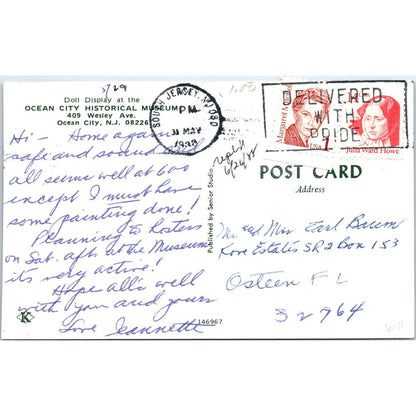 5/29
Doll Display at the
OCEAN CITY HISTORICAL MUSEUM
409 Wesley Ave.
Ocean City, N.J. 08226
Hi - Home again
safe and sound and
all seems well at 600
except I must have
some painting done!
Planning to hostess
on Sat. aft. at the Museum
its very active!
Hope all's well
with you and yours
Love Jeannette
K
146967
Published by Senior Studio
SOUTH JERSEY, NJ 080
PM
31 MAY
1988
DELIVERED
WITH
PRIDE
Margaret Mitchell
1
USA
Julia Ward Howe
6/26/88
POST CARD
Address
Mr and Mrs Earl Baum
Kove Estates SR2 Box 153
Osteen FL
32764